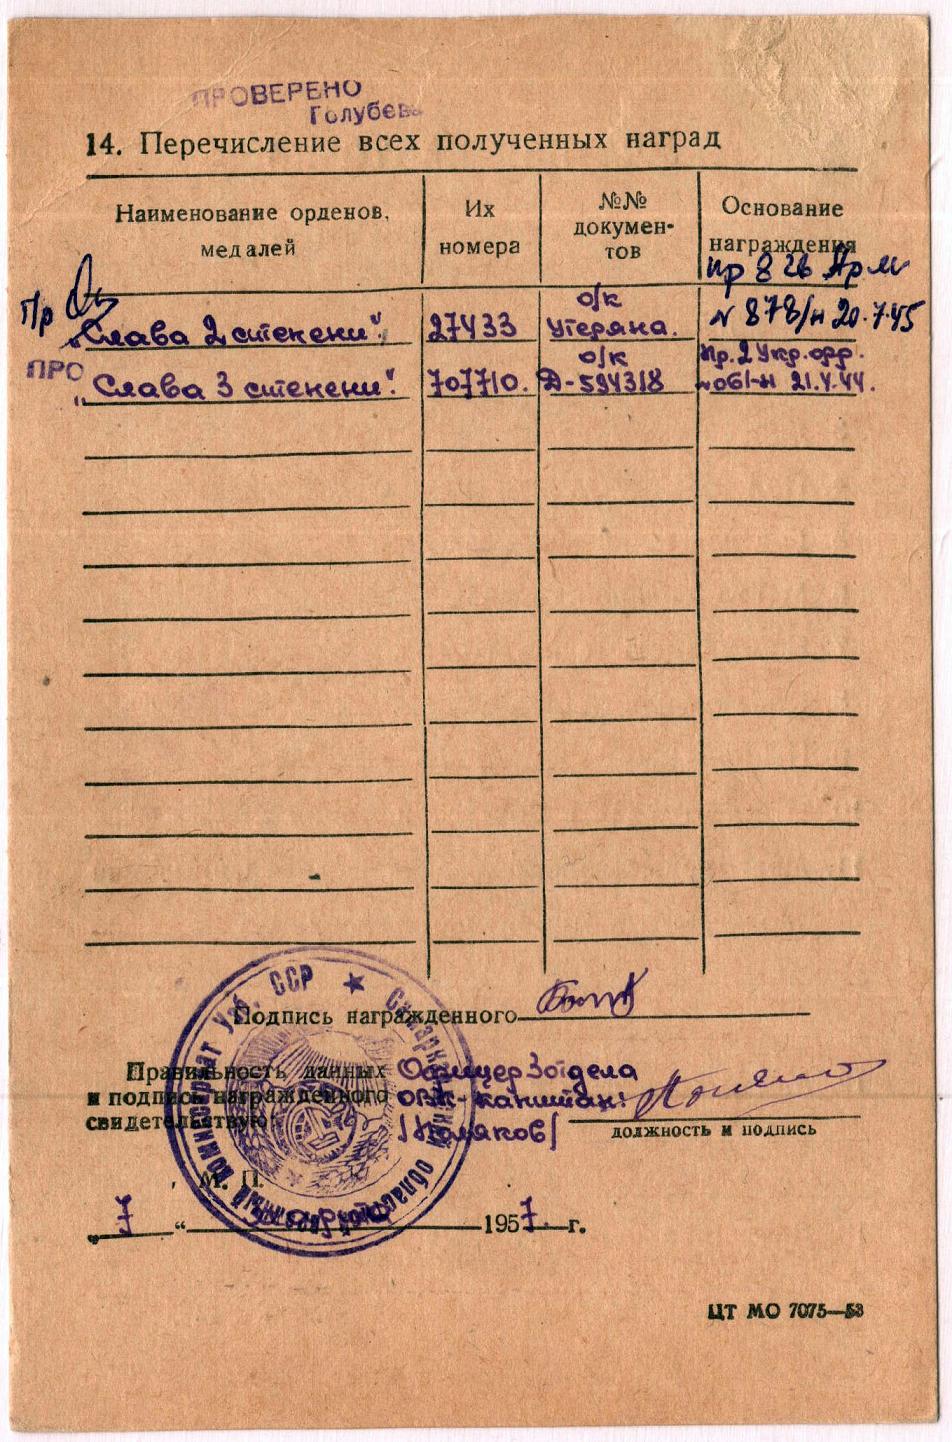 ПРОВЕРЕНО
Голубева
14. Перечисление всех полученных наград
Наименование орденов, медалей
Их номера
№№ докумен-
тов
Основание награждения
пр 8 гв Арм
Пр
„Слава 2 степени".
27433
о/к
утеряна.
№ 878/н 20.7.45
ПРО
„Слава 3 степени".
707710.
о/к
Д-594318
Пр. 2 Укр. фр.
№061-н 21.4.44.
Подпись награжденного
Правильность данных
и подпись награжденного
свидетельствую:
Офицер 3 отдела
ОВК-капитан:
/Поляков/
должность и подпись
М. П.
„7"
1957 г.
Узб. ССР ★ Самаркандский областной военный комиссариат
ЦТ МО 7075—53